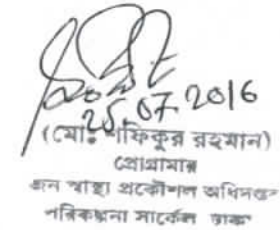 25.07.2016
(মোঃ শফিকুর রহমান)
প্রোগ্রামার
জন স্বাস্থ্য প্রকৌশল অধিদপ্তর
পরিকল্পনা সার্কেল ঢাকা